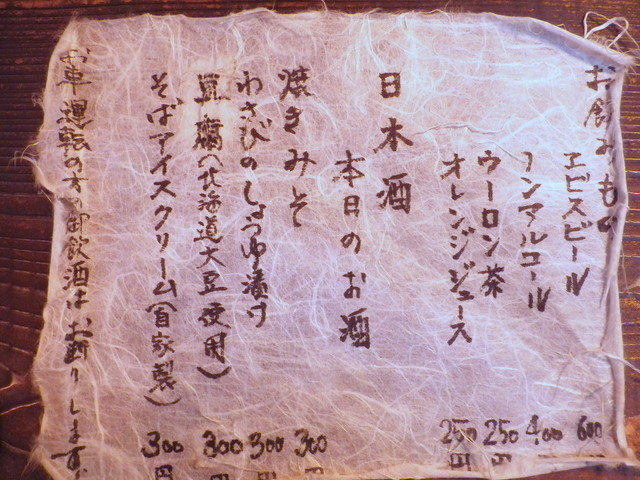 お飲みもの
ヱビスビール 600
ノンアルコール 400
ウーロン茶 250円
オレンジジュース 250円
日本酒
本日のお酒
焼きみそ 300円
わさびのしょうゆ漬け 300円
豆腐(北海道大豆使用) 300円
そばアイスクリーム(自家製) 300円
お車運転の方の御飲酒はお断りします。